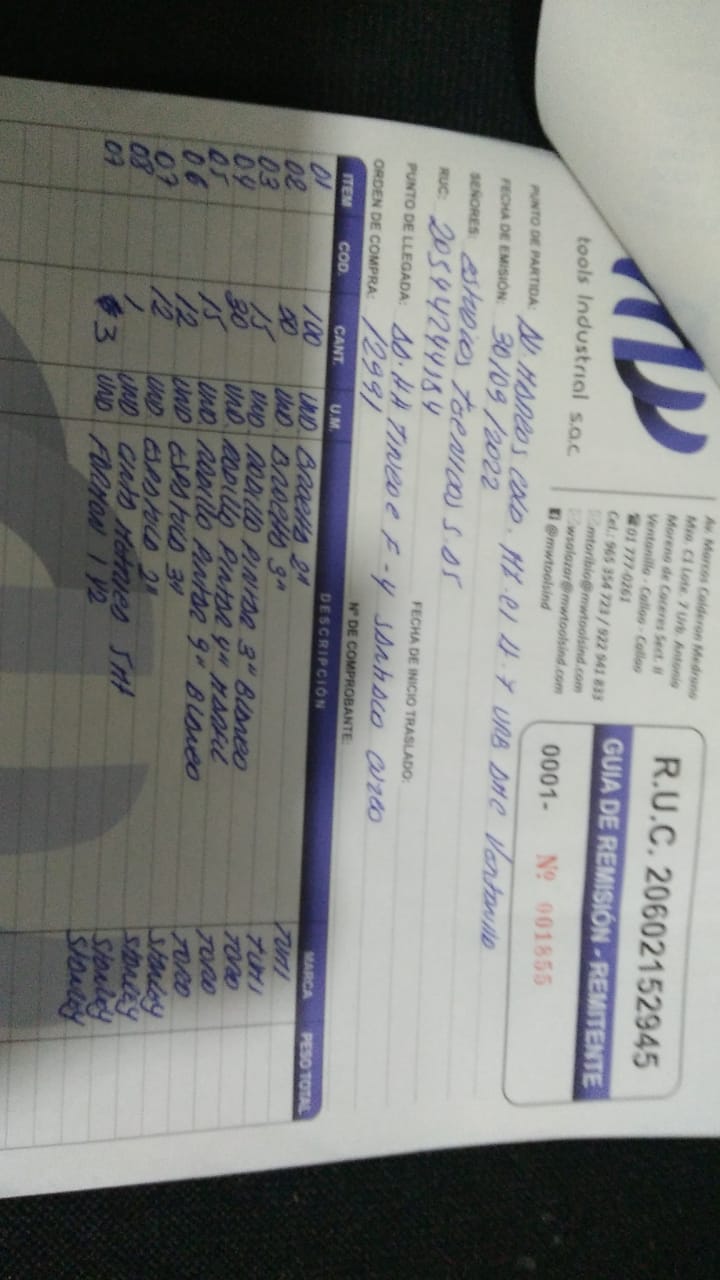 tools Industrial s.a.c.
Av. Marcos Calderon Medrano
Mza. C1 Lote. 7 Urb. Antonia
Moreno de Caceres Sect. II
Ventanilla - Callao - Callao
01 777-0261
Cel.: 965 354 723 / 922 941 833
mtoribio@mwtoolsind.com
wsalazar@mwtoolsind.com
@mwtoolsind
R.U.C. 20602152945
GUIA DE REMISIÓN - REMITENTE
0001- Nº 001855
PUNTO DE PARTIDA: AV. MARCOS CALD. MZ. C1 LT. 7 URB AMC Ventanilla
FECHA DE EMISIÓN: 30/09/2022
FECHA DE INICIO TRASLADO:
SEÑORES: estudios tecnicos S.A.S
RUC: 20544244184
PUNTO DE LLEGADA: AA.HH F-4 SANTIAGO CUZCO
ORDEN DE COMPRA: 12991
Nº DE COMPROBANTE:
ITEM COD. CANT. U.M. DESCRIPCIÓN MARCA PESO TOTAL
01 100 UND BROCHA 2" TUMI
02 50 UND BROCHA 3" TUMI
03 15 UND RODILLO PINTAR 3" BLANCO TORO
04 30 UND RODILLO PINTAR 4" TORO
05 15 UND RODILLO PINTAR 9" BLANCO TORO
06 12 UND ESPATULA 3" STANLEY
07 12 UND ESPATULA 2" STANLEY
08 1 UND CINTA METRICA 5MT STANLEY
09 3 UND FORMON 1 1/2 STANLEY